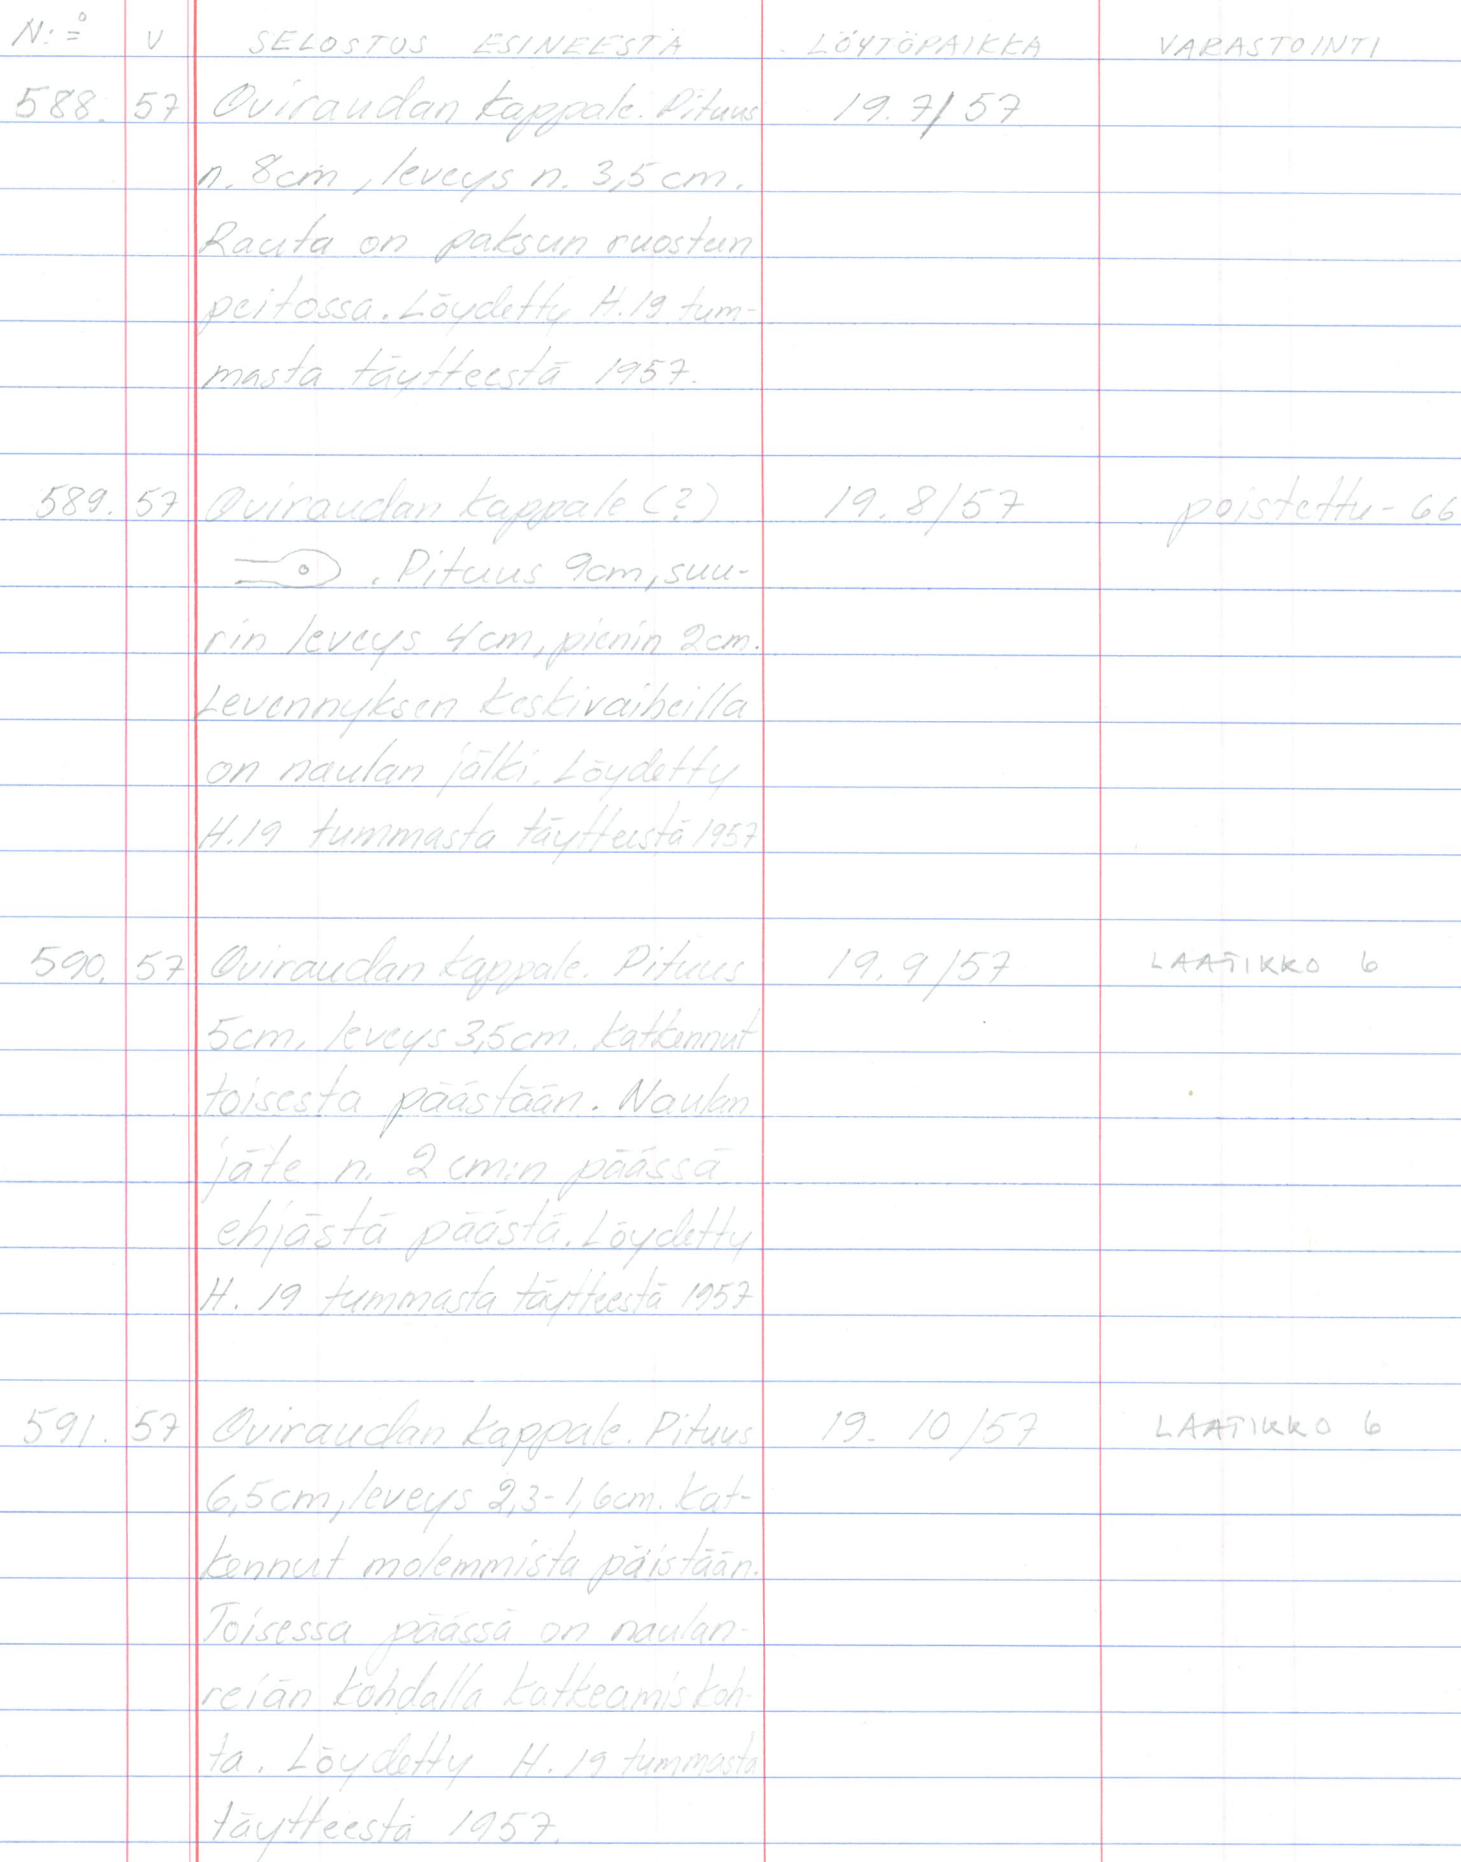 N:o V SELOSTUS ESINEESTÄ LÖYTÖPAIKKA VARASTOINTI
588. 57 Oviraudan kappale. Pituus 19.7/57
n. 8cm, leveys n. 3,5 cm.
Rauta on paksun ruosteen
peitossa. Löydetty H.19 tum-
masta täytteestä 1957.
589. 57 Oviraudan kappale (?) 19.8/57 poistettu-66
. Pituus 9cm, suu-
rin leveys 4cm, pienin 2cm.
Levennyksen keskivaiheilla
on naulan jälki. Löydetty
H.19 tummasta täytteestä 1957
590. 57 Oviraudan kappale. Pituus 19.9/57 LAATIKKO 6
5cm, leveys 3,5cm. Katkennut
toisesta päästään. Naulan
jäte n. 2 cm:n päässä
ehjästä päästä. Löydetty
H. 19 tummasta täytteestä 1957
591. 57 Oviraudan kappale. Pituus 19. 10/57 LAATIKKO 6
6,5cm, leveys 2,3-1,6cm. Kat-
kennut molemmista päistään.
Toisessa päässä on naulan-
reiän kohdalla katkeamiskoh-
ta. Löydetty H.19 tummasta
täytteestä 1957.